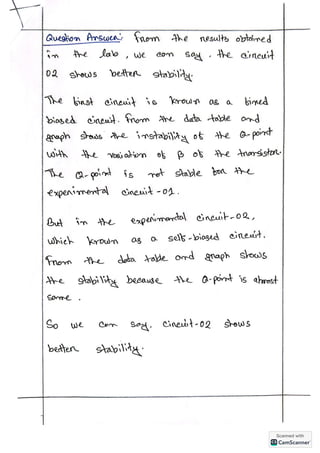 Question Answer: From the results obtained
in the lab, we can say, the circuit
02 shows better stability.
The first circuit is known as a fixed
biased circuit. From the data table and
graph shows the instability of the Q-point
with the variation of β of the transistor.
The Q-point is not stable for the
experimental circuit -01.
But in the experimental circuit-02,
which known as a self-biased circuit.
From the data table and graph shows
the stability because the Q-point is almost
same.
So we can say, circuit-02 shows
better stability.
Scanned with
CS CamScanner